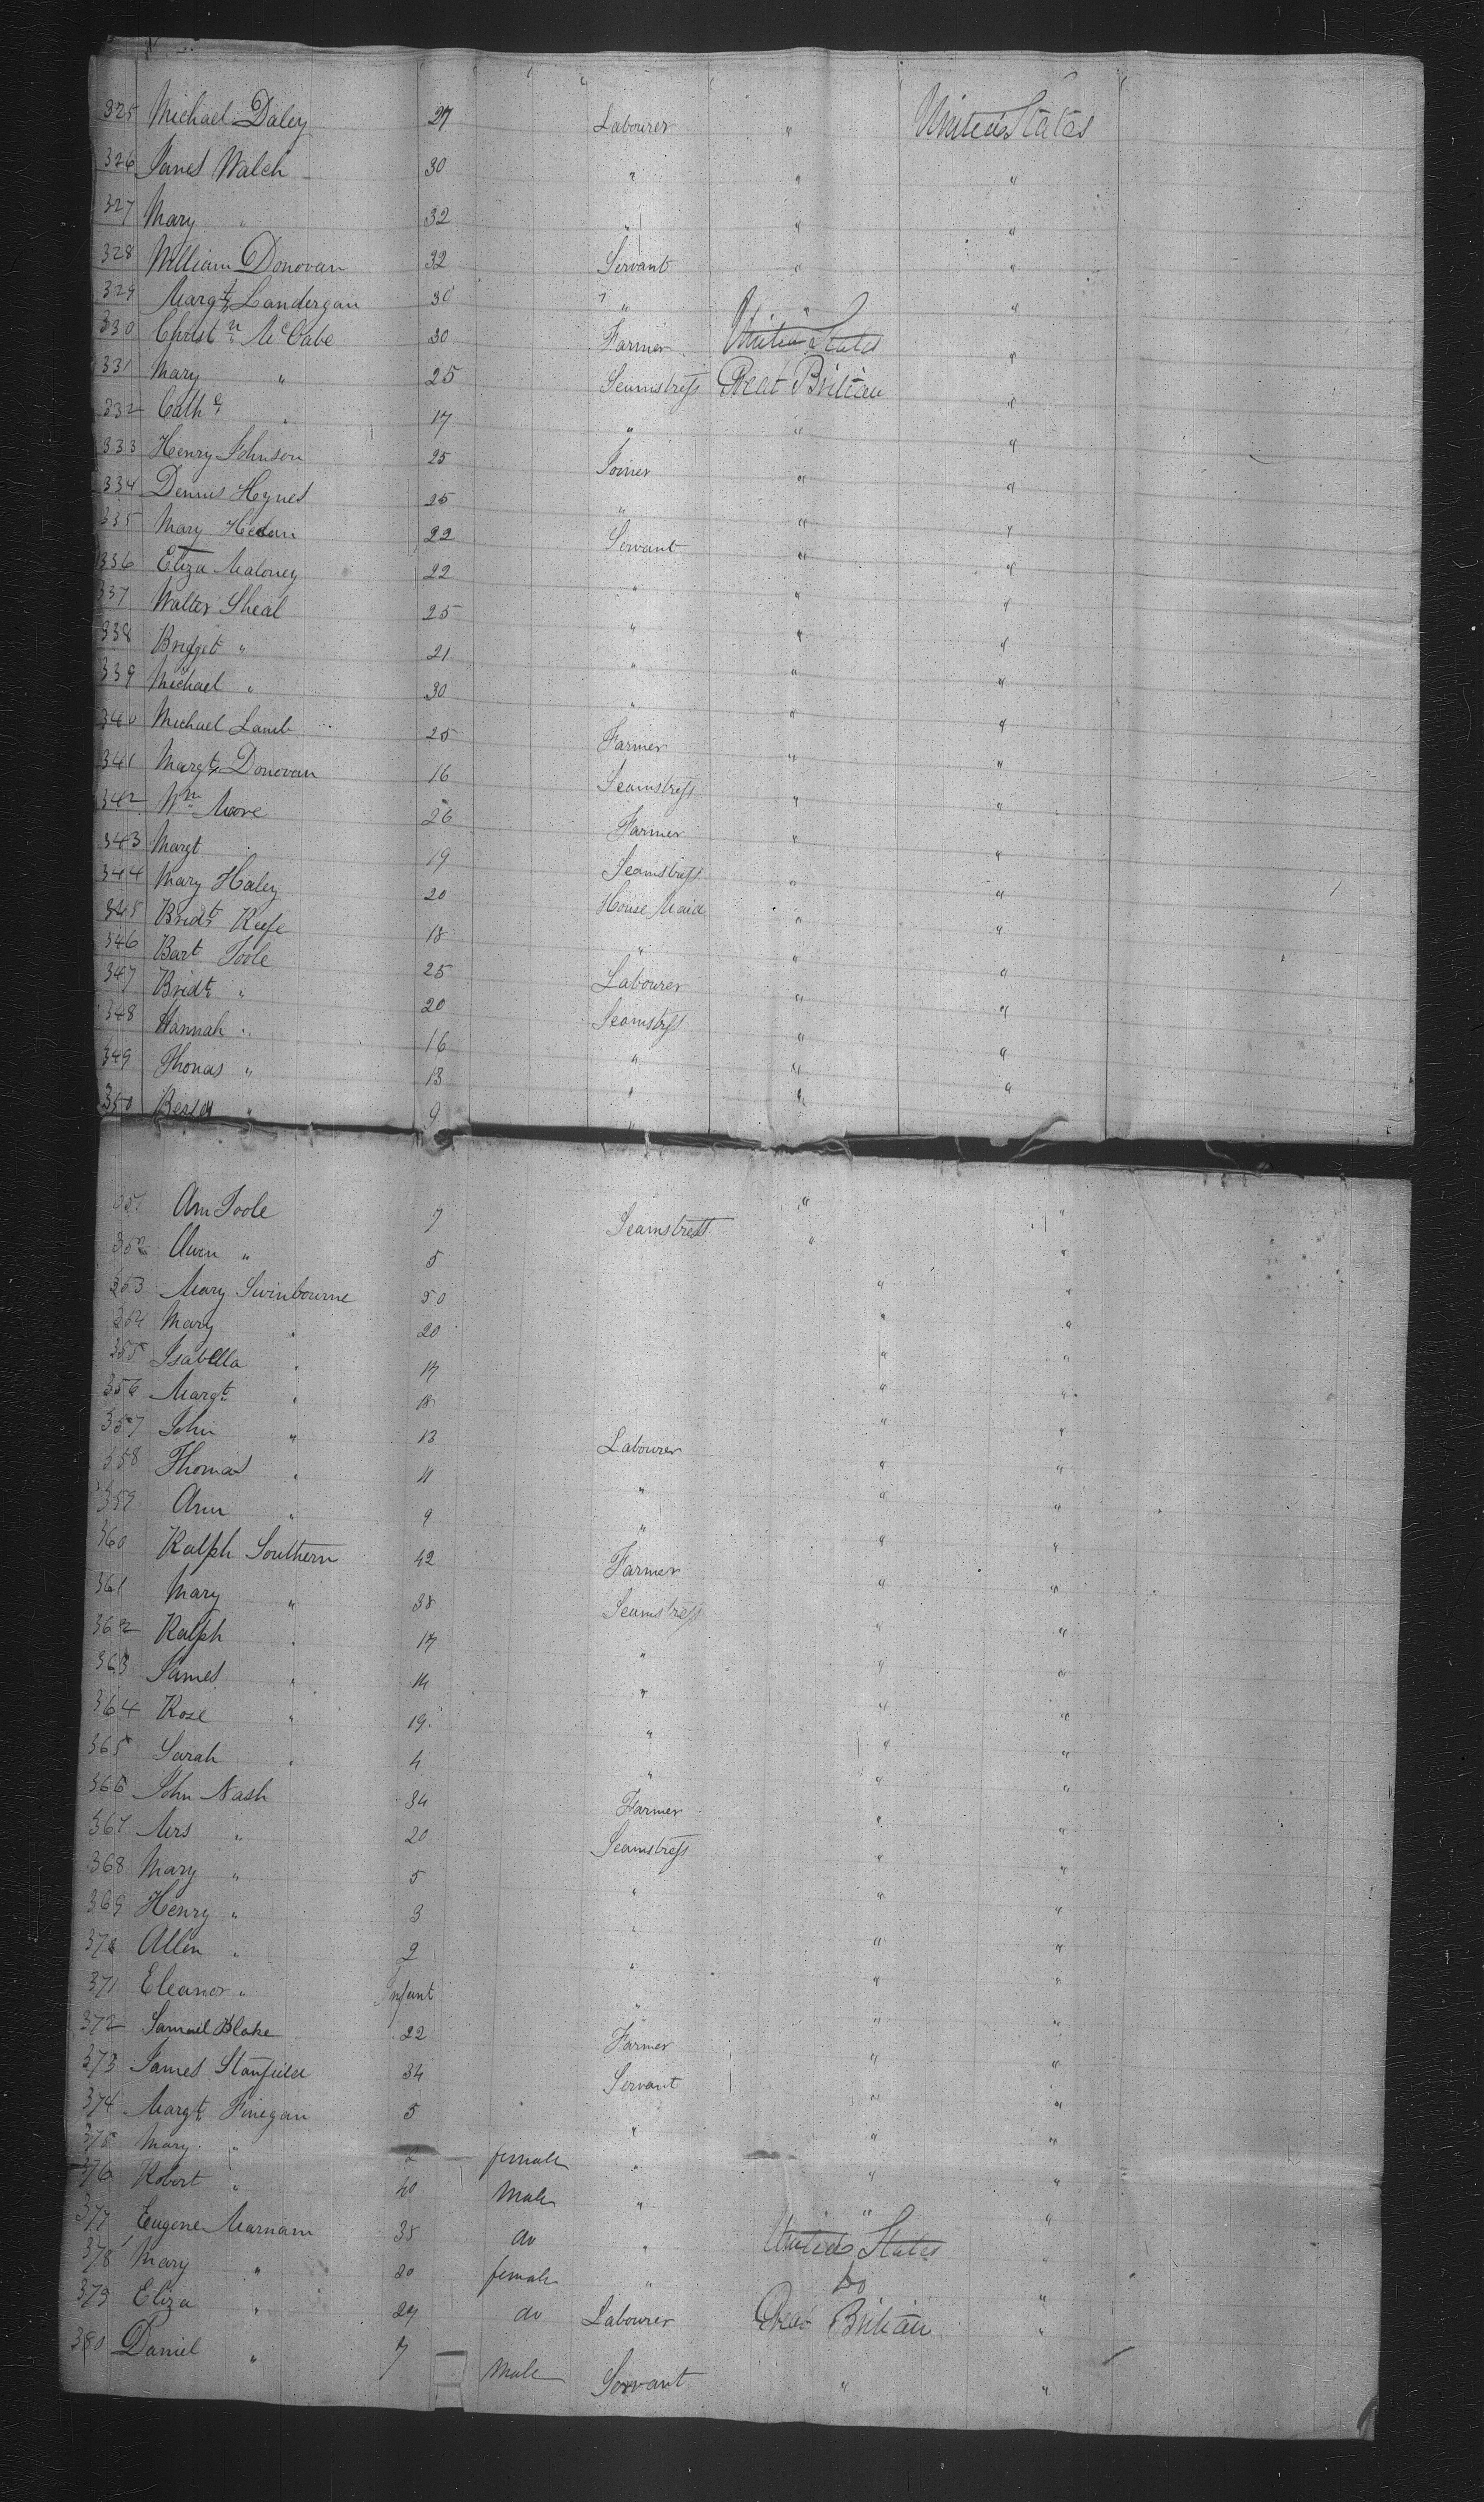 325 Michael Daley 27 Labourer " United States
326 James Walch 30 " " "
327 Mary " 32 " " "
328 William Donovan 32 Servant " "
329 Margt Landergan 30 " " "
330 Christn McCabe 30 Farmer United States "
331 Mary " 25 Seamstress Great Britian "
332 Cathe " 17 " " "
333 Henry Johnson 25 Joiner " "
334 Dennis Hynes 25 " " "
335 Mary 22 Servant " "
336 Eliza Maloney 22 " " "
337 Walter Sheal 25 " " "
338 Bridget " 21 " " "
339 Michael " 30 " " "
340 Michael Lamb 25 Farmer " "
341 Margt Donovan 16 Seamstress " "
342 Wm Moore 26 Farmer " "
343 Margt 19 Seamstress " "
344 Mary Haley 20 House Maid " "
345 Bridt Keefe 18 " " "
346 Bart Toole 25 Labourer " "
347 Bridt " 20 Seamstress " "
348 Hannah " 16 " " "
349 Thomas " 13 " " "
350 " 9 "
351 Ann Toole 7 Seamstress " "
352 Owen " 5 " "
353 Mary Swinbourne 50 " "
354 Mary " 20 " "
355 Isabella " 17 " "
356 Margt " 18 " "
357 John " 13 Labourer " "
358 Thomas " 11 " " "
359 Ann " 9 " " "
360 Ralph Southern 42 Farmer " "
361 Mary " 38 Seamstress " "
362 Ralph " 17 " " "
363 James " 14 " " "
364 Rose " 19 " " "
365 Sarah " 4 " " "
366 John Nash 34 Farmer " "
367 Mrs " 20 Seamstress " "
368 Mary " 5 " " "
369 Henry " 3 " " "
370 Allen " 2 " " "
371 Eleanor " Infant " " "
372 Samuel Blake 22 Farmer " "
373 James Stanfield 34 Servant " "
374 Margt Finegan 5 " " "
375 Mary " 2 female " " "
376 Robert " 40 Male " " "
377 Eugene Marnam 35 do " United States "
378 Mary " 30 female " Do "
379 Eliza " 27 do Labourer Great Britian "
380 Daniel " 7 Male Servant " "